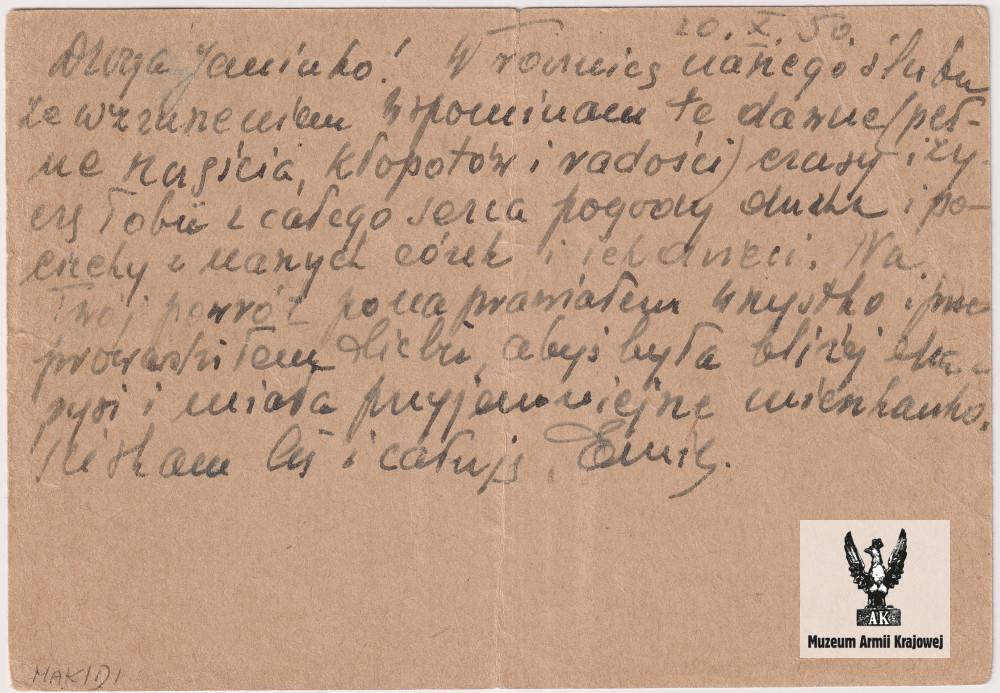 20. X. 50.
Droga Janinko! W rocznicę naszego ślubu
ze wzruszeniem wspominam te dawne (peł-
ne szczęścia, kłopotów i radości) czasy i ży-
czę Tobie z całego serca pogody ducha i po-
ciechy z naszych córek i ich dzieci. Na
Twój powrót ponaprawiałem wszystko i prze
prowadziłem abyś była bliżej
i miała przyjemniejsze mieszkanko.
Ściskam Cię i całuję. Emil.
MAKIDI
AK
Muzeum Armii Krajowej